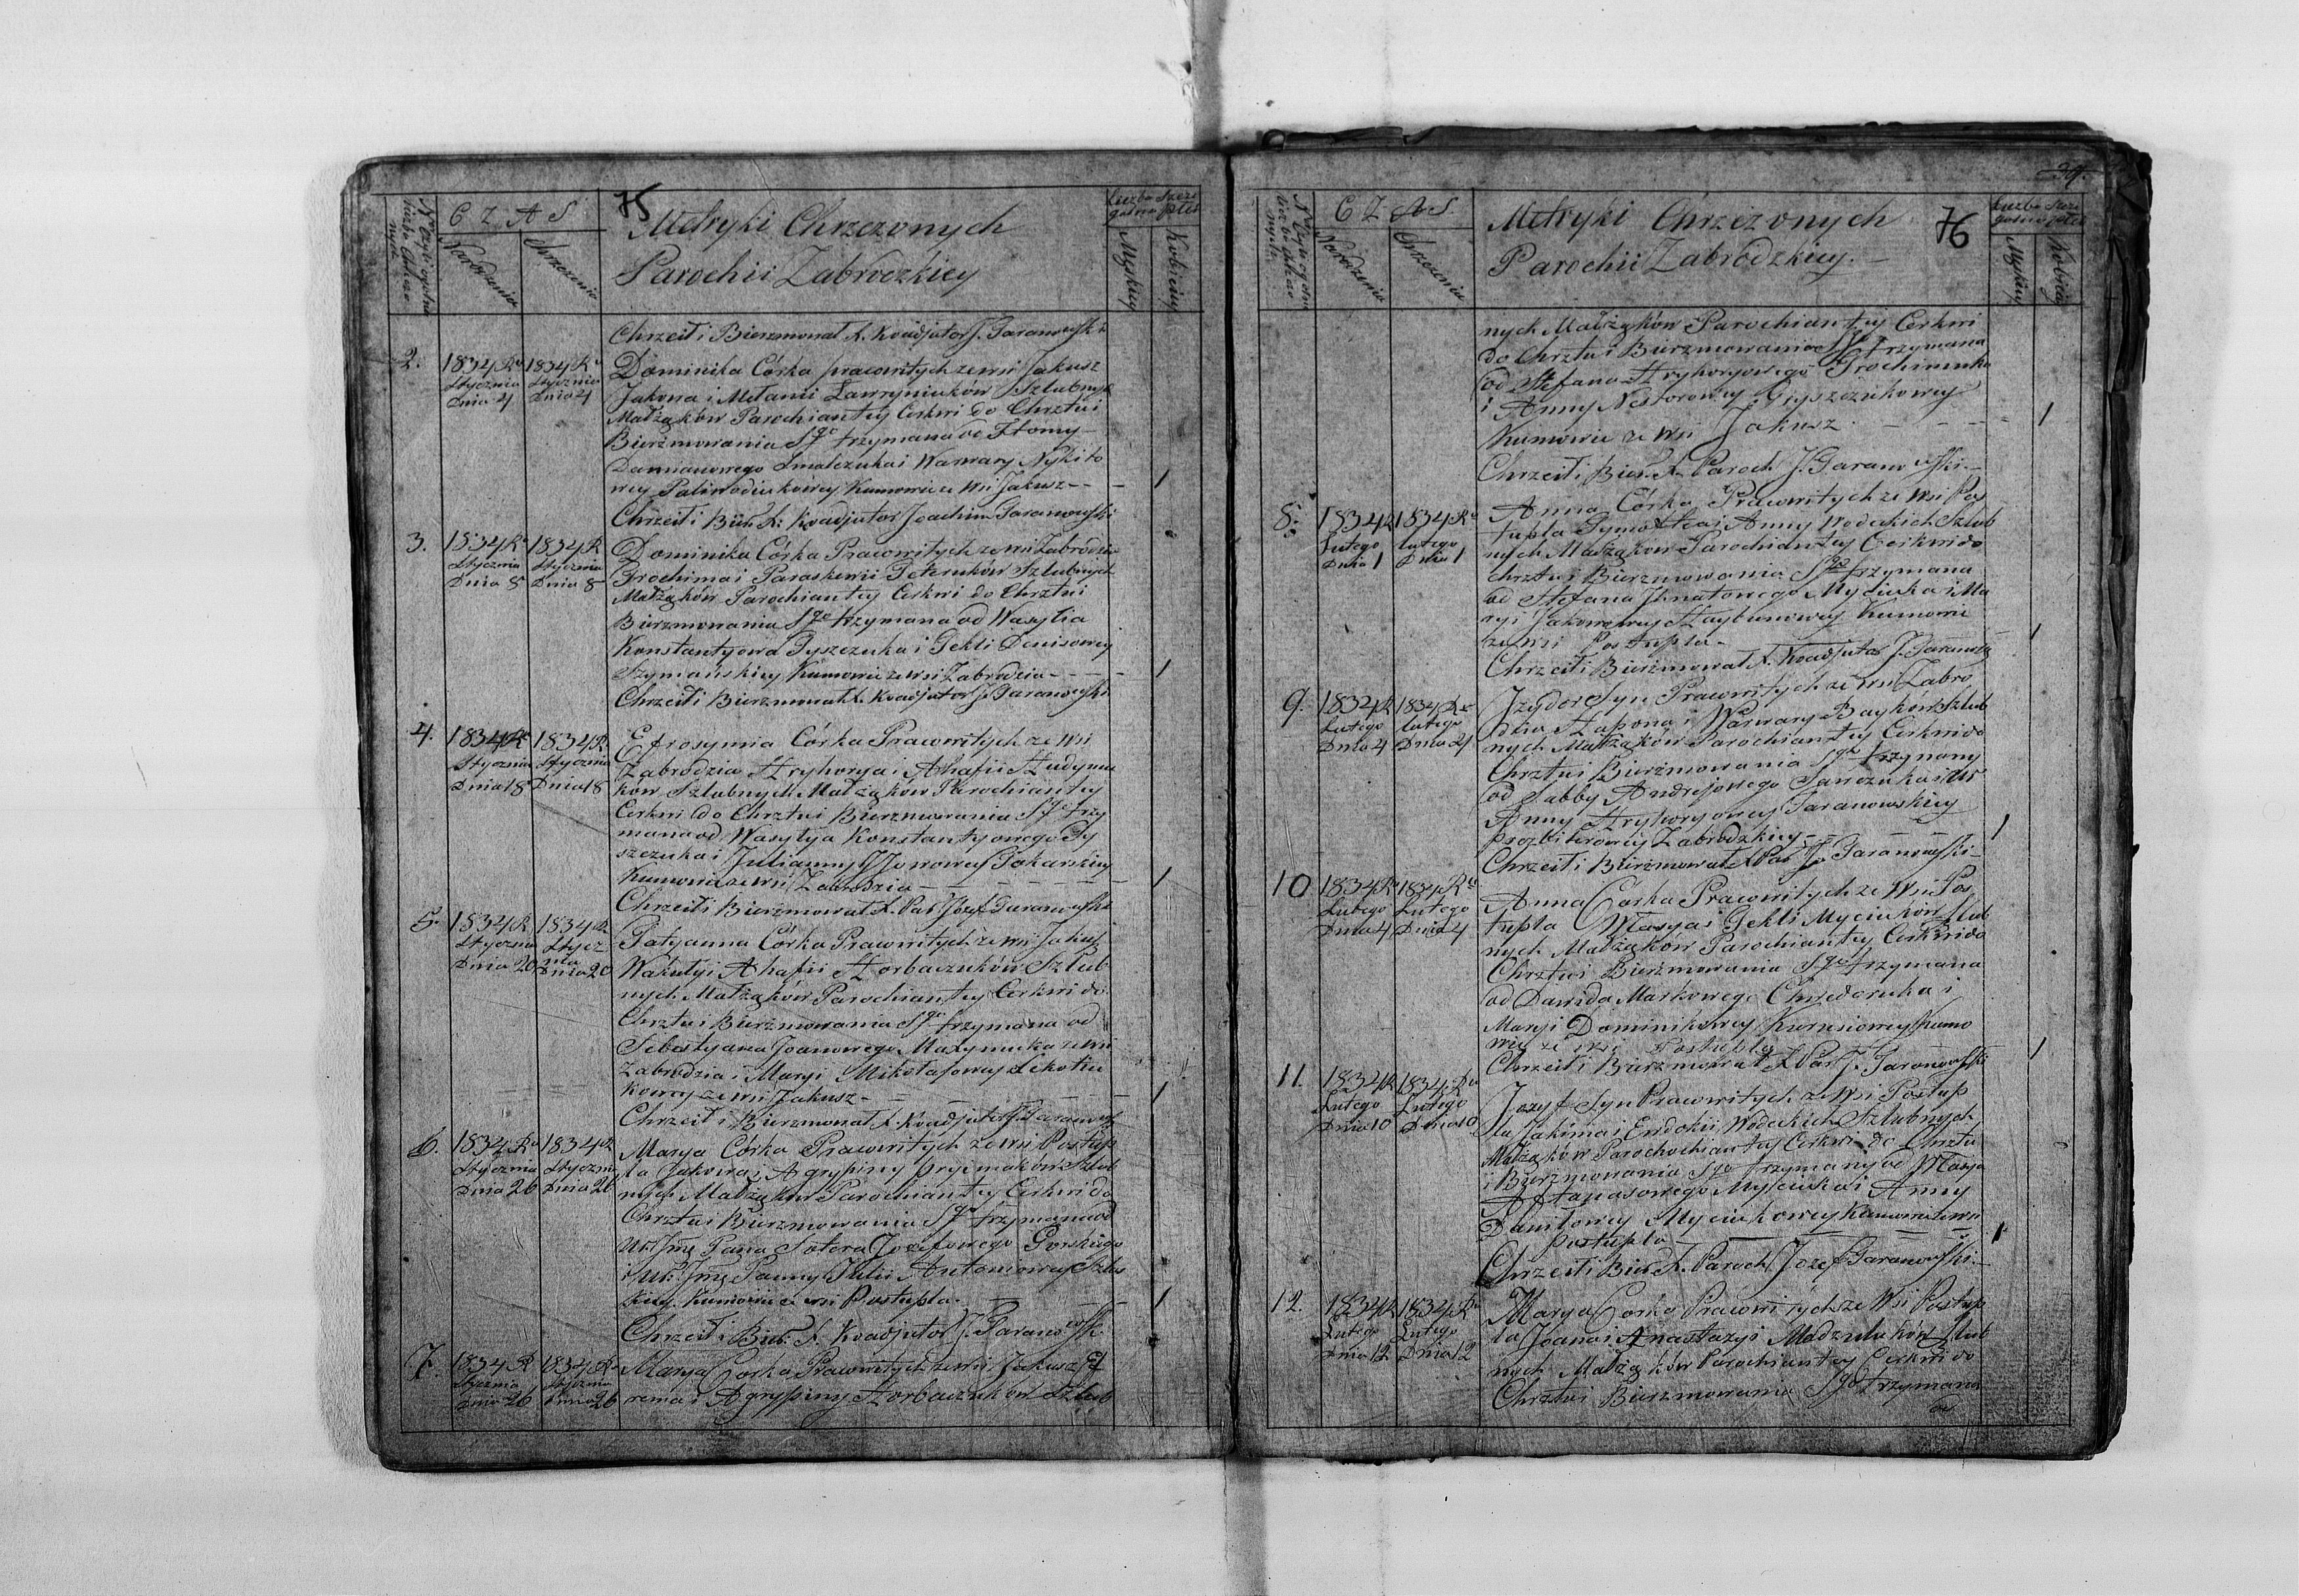 75
C Z A S
Metryki Chrzczonych
Parochii Zabrodzkiey
Liczba Szcze
gólna Płci
Narodzenia
Chrzczenia
Męskiey
Kobiecey
Chrzcił i Bierzmował X. Koadjutor J. Taranowski
2.
1834 Ru
Stycznia
Dnia 4
1834 Ru
Stycznia
Dnia 4
Dominika Córka prawowitych ze wsi Jakusz
Jakowa i Melanii Ławryniuków Szlubnych
Małżąków Parochian tey Cerkwi do Chrztu i
Bierzmowania Sgo trzymana od Fłomy
Damianowego Smalczuka i Warwary Nykito
wey Paliwodiukowey Kumowie ze wsi Jakusz - -
Chrzcił i Bier. X. Koadjutor Joachim Taranowski
3.
1834 R
Stycznia
Dnia 8
1834 R
Stycznia
Dnia 8
Dominika Córka Prawowitych ze wsi Zabrodzia
Trochima i Paraskewii Peteruków Szlubnych
Małżąków Parochian tey Cerkwi do Chrztu i
Bierzmowania Sgo trzymana od Wasylia
Konstantyowa Tyszczuka i Tekli Denisowey
Szymańskiey Kumowie ze wsi Zabrodzia - - -
Chrzcił i Bierzmował X. Koadjutor J. Taranowski
4.
1834 R
Stycznia
Dnia 18
1834 R
Stycznia
Dnia 18
Efrosymia Córka Prawowitych ze wsi
Zabrodzia Hryhorya i Ahafii Hudyma
ków Szlubnych Małżąków Parochian tey
Cerkwi do Chrztu i Bierzmowania Sgo trzy
mana od Wasylya Konstantyowego Ty
szczuka i Julianny Tokarskiey
Kumowie ze wsi Zabrodzia - - - -
Chrzcił i Bierzmował X. Par Józef Taranowski
5.
1834 R
Stycznia
Dnia 20
1834 R
Stycz
nia
Dnia 20
Tatyanna Córka Prawowitych ze wsi Jakusz
Wakuły i Ahafii Horbaczuków Szlub
nych Małżąków Parochian tey Cerkwi do
Chrztu i Bierzmowania Sgo trzymana od
Sebestyana Joanowego Maxymuka ze wsi
Zabrodzia i Maryi Mikołajowey
kowey ze wsi Jakusz - - - -
Chrzcił i Bierzmował X. Koadjutor J. Taranowski
6.
1834 Ru
Stycznia
Dnia 26
1834 R
Stycznia
Dnia 26
Marya Córka Prawowitych ze wsi Postup
la Jakowa i Agrypiny Pryimaków Szlub
nych Małżąków Parochian tey Cerkwi do
Chrztu i Bierzmowania Sgo trzymana od
Pana Sotera Józefowego Gorskiego
i Panny Julii Antoniowey
kiey Kumowie ze wsi Postupla. -
Chrzcił i Bier. X. Koadjutor J. Taranowski
7.
1834 R
Stycznia
Dnia 26
1834 R
Stycznia
Dnia 26
Marya Córka Prawowitych ze wsi Jakusz
rema i Agryppiny Horbaczuków Szlub
76
C Z A S
Metryki Chrzczonych
Parochii Zabrodzkiey. -
Liczba Szcze
gólna Płci
Narodzenia
Chrzczenia
Męskiey
Kobiecey
nych Małżąków Parochian tey Cerkwi
do Chrztu i Bierzmowania Sgo trzymana
od Stefana Hryhoryowego Trochimuka
i Anny Nestorowey Tyszczukowey
Kumowie ze wsi Jakusz. - - - -
Chrzcił i Bier. X. Paroch J. Taranowski -
8.
1834 R
Lutego
Dnia 1
1834 Ru
Lutego
Dnia 1
Anna Córka Prawowitych ze wsi Pos
tupla Tymofteia i Anny Wodeckich Szlub
nych Małżąków Parochian tey Cerkwi do
chrztu i Bierzmowania Sgo trzymana
od Stefana Ihnatowego Myciuka i Ma
ryi Jakowowey Kumowie
ze wsi Postupla -
Chrzcił i Bierzmował X. Koadjutor J. Taranowski
9.
1834 R
Lutego
Dnia 4
1834 Ru
Lutego
Dnia 4
Jzydor Syn Prawowitych ze wsi Zabro
dzia Hapona i Warwary Bayków Szlub
nych Małżąków Parochian tey Cerkwi do
Chrztu i Bierzmowania Sgo trzymany
od Sabby Andrejowego Sawczuka i
Anny Hryhoryowey Taranowskiey
prezbiterowey Zabrodzkiey - - - -
Chrzcił i Bierzmował X Par Jo Taranowski -
10
1834 Ru
Lutego
Dnia 4
1834 Ru
Lutego
Dnia 4
Anna Córka Prawowitych ze wsi Pos
tupla Własya i Tekli Myciuków Szlub
nych Małżąków Parochian tey Cerkwi do
Chrztu i Bierzmowania Sgo trzymana
od Dawida Markowego Chwedoruka i
Maryi Dominikowey Kurusiowey Kumo
wie ze wsi Postupla
Chrzcił i Bierzmował X Par J. Taranowski
11.
1834 R
Lutego
Dnia 10
1834 Ru
Lutego
Dnia 10
Jozyf Syn Prawowitych ze wsi Postup
la Jakima i Ewdokii Wodeckich Szlubnych
Małżąków Parochochian tey Cerkwi do Chrztu
i Bierzmowania Sgo trzymany od Własya
Aftanasowego Myciuka i Anny
Daniłowey Myciukowey Kumowie ze wsi
Postupla
Chrzcił i Bier X. Paroch Jozef Taranowski -
12.
1834 R
Lutego
Dnia 12
1834 Ru
Lutego
Dnia 12
Marya Corka Prawowitych ze wsi Postup
la Joana i Anastazyi Madzeluków Szlub
nych Małżąków Parochian tey Cerkwi do
Chrztu i Bierzmowania Sgo trzymana
od